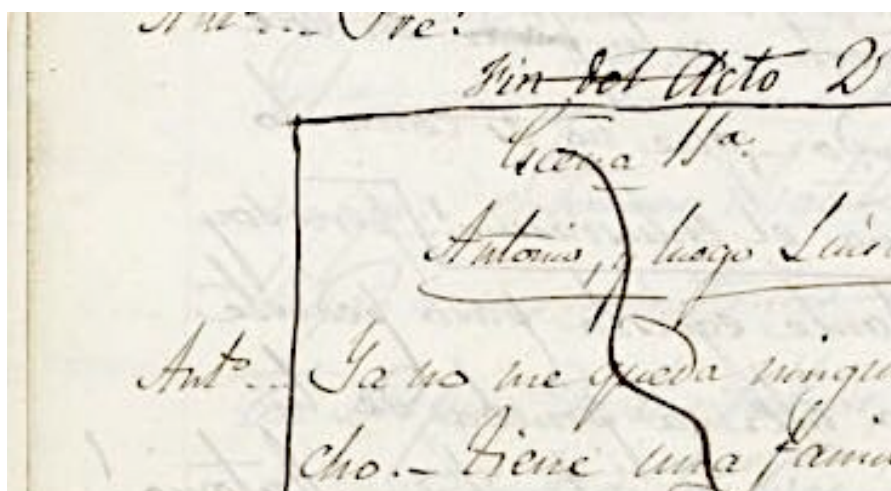 Antº... Iré.
Fin del Acto 2º
Escena 11ª.
Antonio, y luego Luis
Antº... Ya no me queda ningu
cho. - Tiene una famil